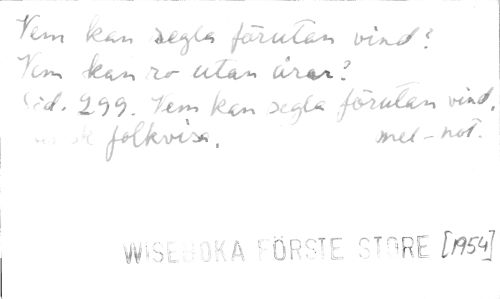 Vem kan segla förutan vind?
Vem kan ro utan åror?
Sid. 299. Vem kan segla förutan vind.
folkvisa. mel-not.
WISEBOKA FÖRSTE STORE [1954]